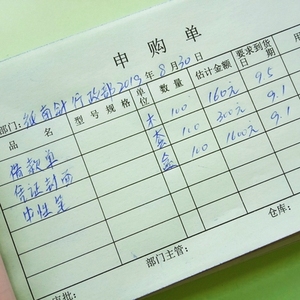 申购单
部门: 行政部 2019年8月30日
品名 型号规格 单位 数量 估计金额 要求到货日期 用
借款单 本 100 160元 9.5
凭证封面 套 100 300元 9.1
中性笔 盒 100 1600元 9.1
仓库:
部门主管:
审批: